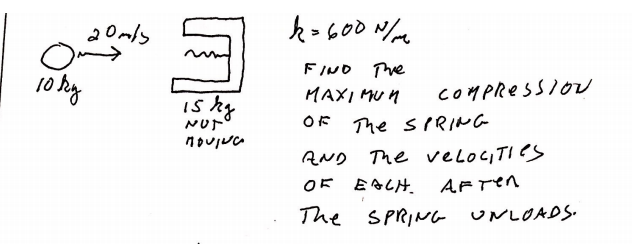 20 m/s
10 kg
15 kg
NOT
MOVING
k = 600 N/m
FIND THE
MAXIMUM COMPRESSION
OF THE SPRING
AND THE VELOCITIES
OF EACH. AFTER
THE SPRING UNLOADS.